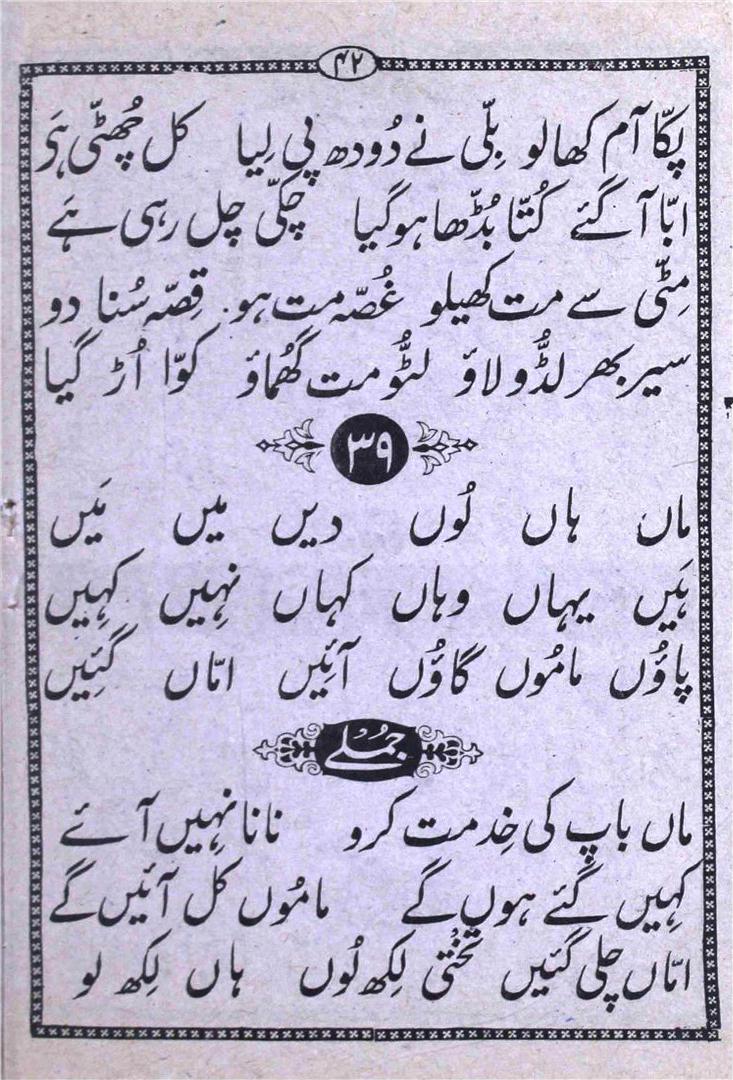 ۴۲
پکّا آم کھا لو بِلّی نے دُودھ پی لِیا کل چُھٹّی ہَو
ابّا آ گئے کُتّا بُڈّھا ہو گیا چکّی چل رہی ہَے
مِٹّی سے مت کھیلو غُصّہ مت ہو۔ قِصّہ سُنا دو
سیر بھر لڈُّو لاؤ لٹُّو مت گُھماؤ کوّا اُڑ گیا
۳۹
ماں ہاں لُوں دیں میں مَیں
ہَیں یہاں وہاں کہاں نہیں کہیں
پاؤں مامُوں گاؤں آئیں امّاں گئیں
جُملے
ماں باپ کی خِدمت کرو نانا نہیں آئے
کہیں گئے ہوں گے مامُوں کل آئیں گے
امّاں چلی گئیں تختی لِکھ لُوں ہاں لِکھ لو